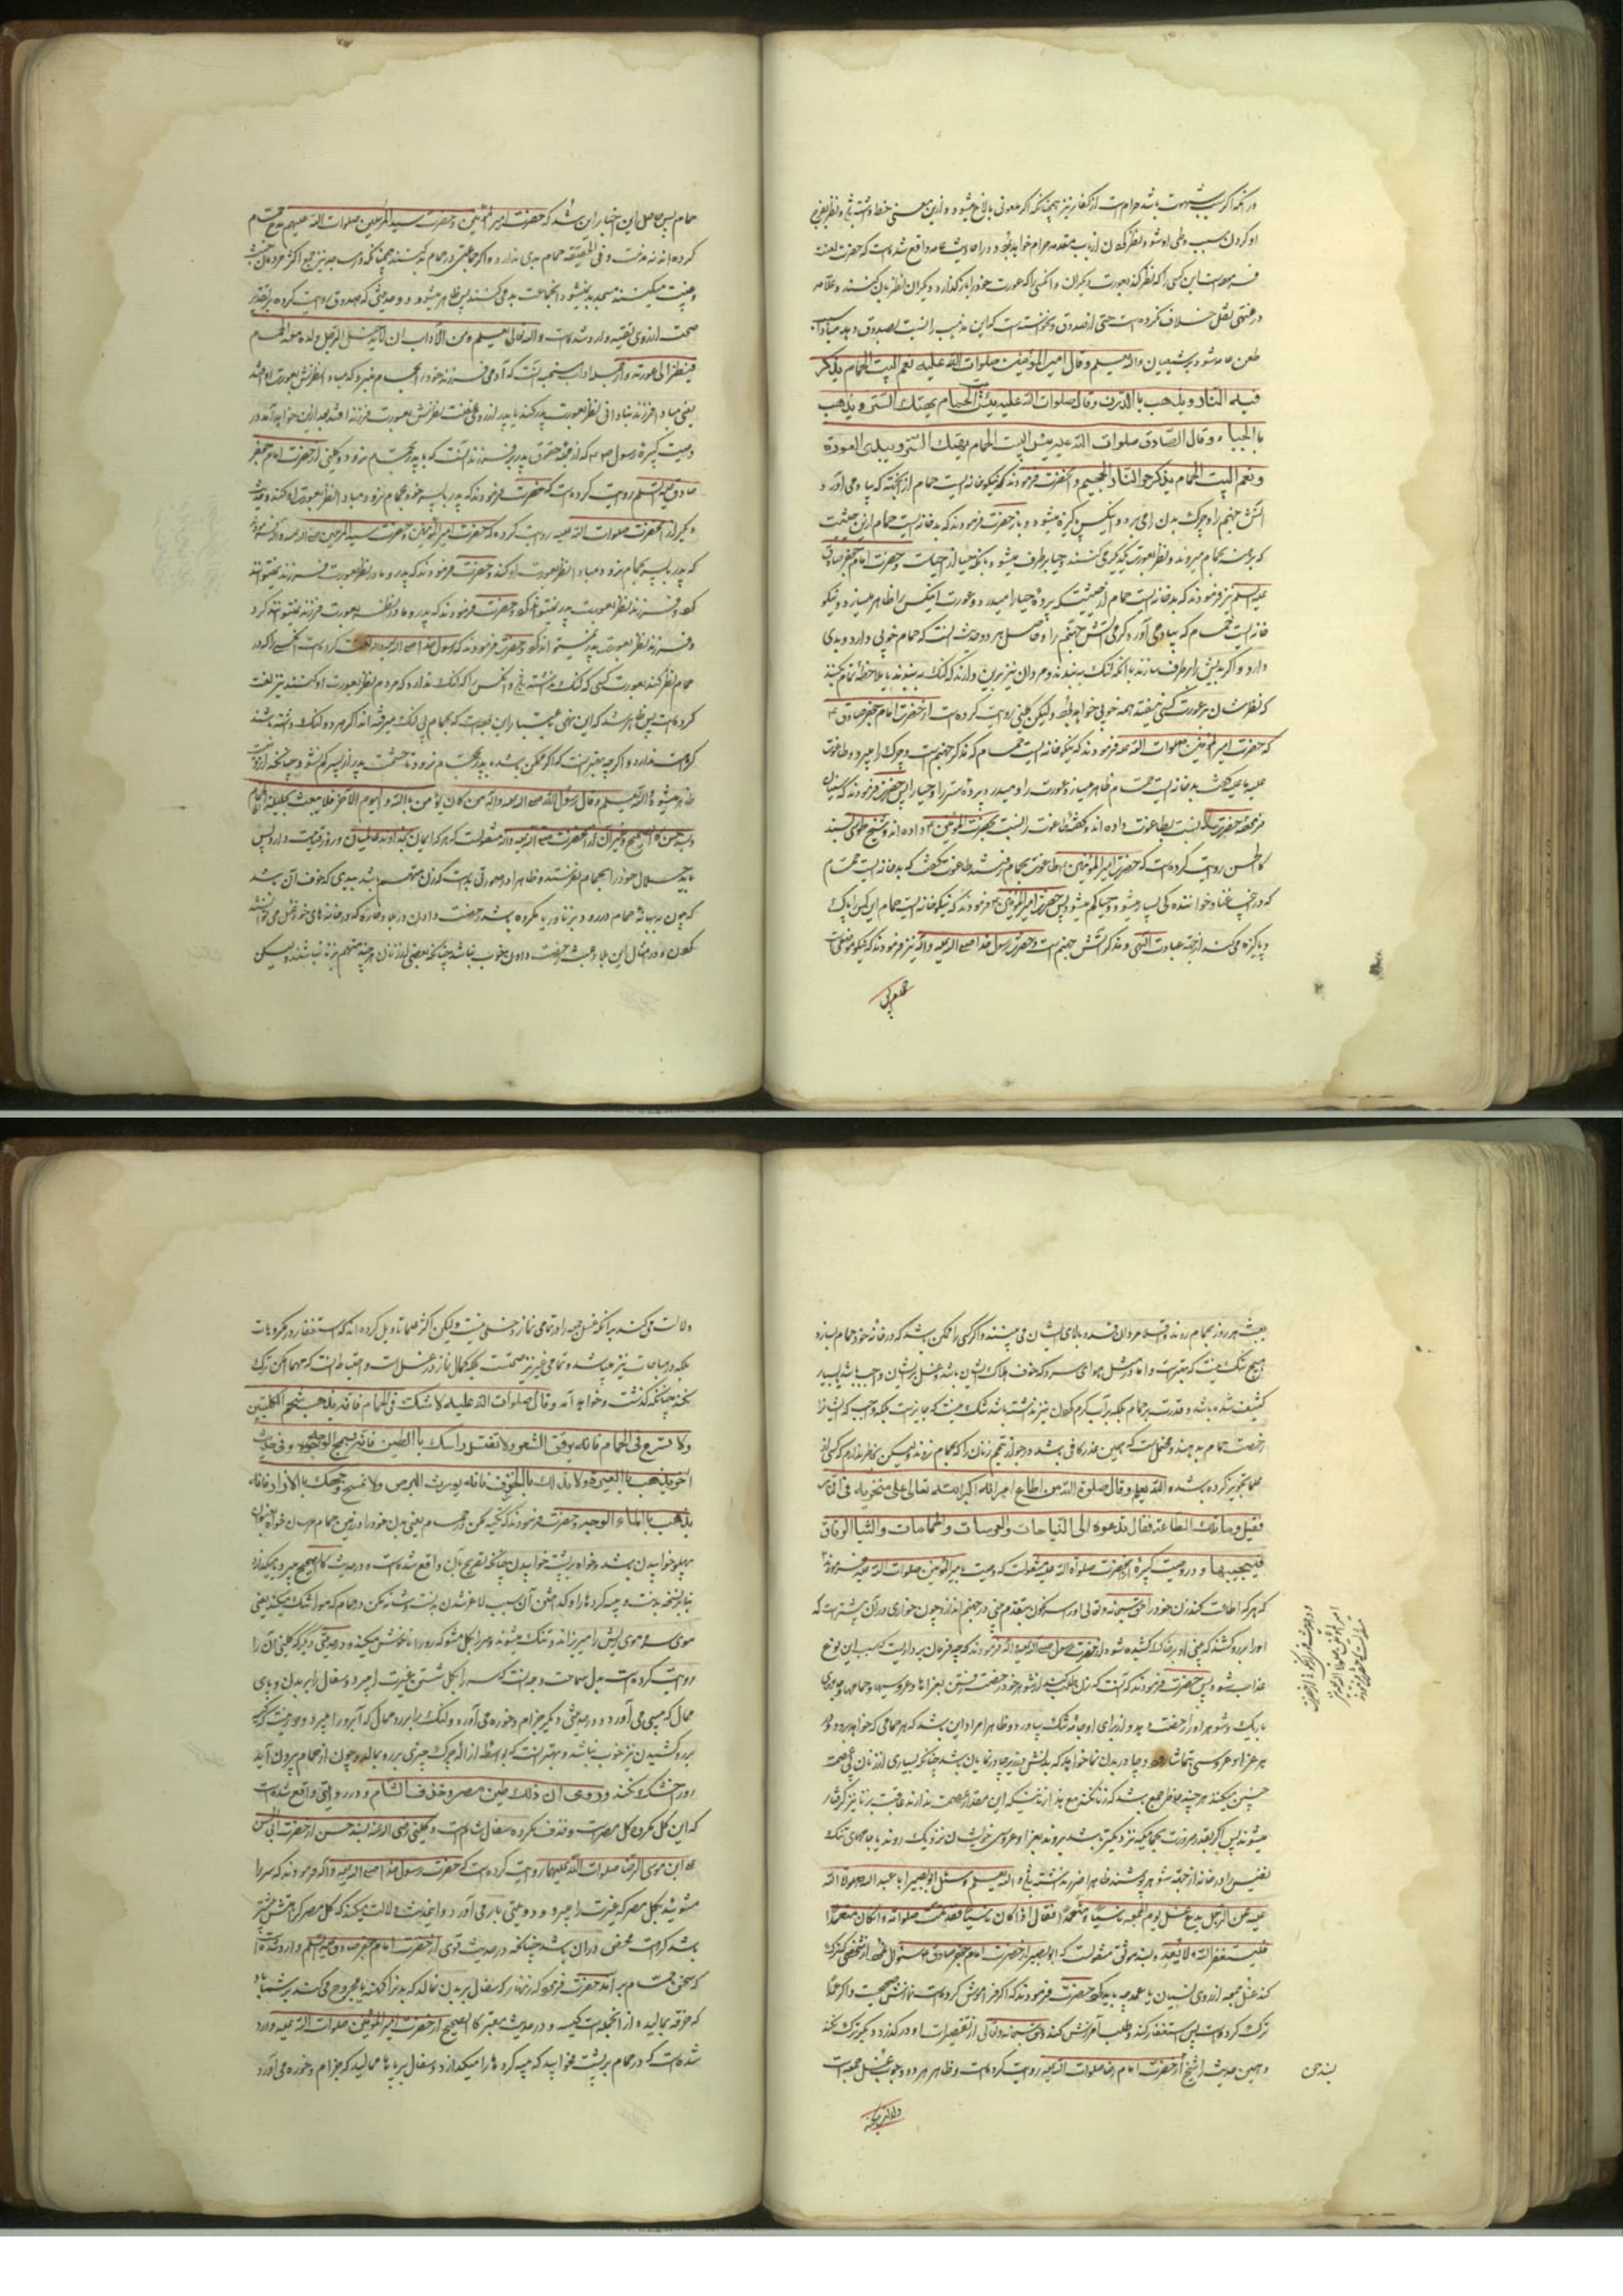 در آنکه اگر بشهوت باشد حرام است از کفار نیز همچنانکه اگر
او کردن سبب وطی او شود و نظر کردن از باب مقدمه حرام خواهد بود و در احادیث عامه واقع شده است که حضرت لعنت
فرموده است این کسی را که نظر کند بعورت دیگران و آنکسی را که عورت خود را باز گذارد و دیگران نظر بآن کنند و علامه
در منتهی نقل خلاف نکرده است حتی از صدوق و نخواسته است که این مذهب را نسبت بصدوق دهد مبادا سبب
طعن عامه شود بر شیعیان والله یعلم وقال امیر المؤمنین صلوات الله علیه نعم البیت الحمام یذکر
فیه النار و یذهب بالدرن وقال صلوات الله علیه بئس البیت الحمام یهتک الستر و یذهب
بالحیاء وقال الصادق صلوات الله علیه بئس البیت الحمام یهتک الستر و یبدی العورة
و نعم البیت الحمام یذکر حر النار الجحیم و آنحضرت فرمودند که نیکو خانه ایست حمام از آنجهت که بیاد می آورد
آتش جهنم را و چرک بدن را می برد و اینکس پاکیزه میشود و باز حضرت فرمودند که بد خانه ایست حمام از این حیثیت
که برهنه بحمام میروند و نظر بعورت یکدیگر می کنند و حیا بر طرف میشود با آنکه حیا از ایمانست و حضرت امام جعفر صادق
علیه السلم نیز فرمودند که بد خانه ایست حمام از حیثیت که پرده حیا را میدرد و عورت اینکس را ظاهر میسازد و نیکو
خانه ایست حمام که بیاد می آورد گرمی آتش جهنم را و حاصل هر دو حدیث آنست که حمام خوبی دارد و بدی
دارد و اگر بدیش را برطرف سازند بآنکه لنگ ببندند و مردمان نیز بر این دارند که لنگ ببندند یا ملاحظه تمام بکنند
که نظرشان بر عورت کسی نیفتد همه خوبی خواهد بود و لیکن کلینی روایت کرده است از حضرت امام جعفر صادق ع
که حضرت امیر المؤمنین صلوات الله علیه فرمودند که نیکو خانه ایست حمام که مذکر جهنم است و چرک را میبرد و طاعوت
علیه ما علیه گفت بد خانه ایست حمام ظاهر میسازد عورت را و میدرد پرده ستر را و حیا را پس حضرت فرمودند که سنیان
نسبت بطاعوت داده اند و گفته طاعوت را نسبت بحضرت امیر المؤمنین ع داده اند و شیخ طوسی بسند
کالحسن روایت کرده است که حضرت امیر المؤمنین با طاعوت بحمام رفتند طاعوت گفت که بد خانه ایست حمام
که در تعب و عنا خواننده کی بسیار میشود و حیا کم میشود پس حضرت امیر المؤمنین ع فرمودند که نیکو خانه ایست حمام این کس را پاک
و پاکیزه می کند از جهة عبادت الهی و مذکر آتش جهنم است و حضرت رسول خدا صلی الله علیه وآله نیز فرمودند که نیکو موضعی است
حمام پس
حمام پس حاصل این اخبار این شد که حضرت امیر المؤمنین و حضرت سید المرسلین صلوات الله علیهم مدح حمام
کرده اند نه مذمت و فی الحقیقه حمام بدی ندارد و اگر جماعتی در حمام بد کنند همچنانکه در مسجد نیز جمع اکثر مردمان
و غیبت میکنند مسجد بد نمیشود آنجماعت بد می کنند پس ظاهر میشود دو حدیثی که صدوق روایت کرده بر تقدیر
صحت از روی تقیه وارد شده است والله تعالی یعلم ومن الآداب ان لا یدخل الرجل ولده معه الحمام
فینظر الی عورته و از جمله آداب سنتیه آنست که آدمی فرزند خود را بحمام نبرد که مبادا نظرش بعورت او افتد
یعنی مبادا فرزند بنادانی نظر بعورت پدر کند یا پدر از روی غفلت نظرش بعورت فرزند افتد بعد ازین خواهد آمد در
وصیت کبیره رسول ص که از جمله حقوق پدر بر فرزند آنست که با پدر بحمام نرود و کلینی از حضرت امام جعفر
صادق علیه السلم روایت کرده است که حضرت فرمودند که پدر با پسر خود بحمام نرود مبادا نظر بعورت او کند و حدیث
دیگر از آنحضرت صلوات الله علیه روایت کرده که حضرت امیر المؤمنین و حضرت سید المرسلین صلی الله علیه وآله فرمودند
که پدر با پسر بحمام نرود مبادا نظر بعورت او کند و حضرت فرمودند که پدر و مادر نظر بعورت فرزند نمیتوانند
کرد و فرزند نظر بعورت پدر نمیتواند کرد و حضرت فرمودند که پدر و مادر نظر بعورت فرزند نمیتوانند کرد
و فرزند نظر بعورت پدر نمیتواند کرد و حضرت فرمودند که رسول خدا صلی الله علیه وآله لعنت کرده است آنکسی را که در
حمام نظر کند بعورت کسی که لنگ نداشته باشد و آنکس را که لنگ ندارد که مردم نظر بعورت او کنند نیز لعنت
کرده است پس ظاهر شد که این نهی باعتبار این بوده است که بحمام بی لنگ میرفته اند اگر هر دو لنگ داشته باشند
کراهت ندارد و اگر چه بهتر آنست که اگر ممکن باشد پدر بحمام نرود تا حشمت پدر از پسر کم نشود چنانکه از
ظاهر میشود والله یعلم وقال رسول الله صلی الله علیه وآله من کان یؤمن بالله والیوم الآخر فلا یبعث بحلیلته الی الحمام
و بسند حسن کالصحیح و غیر آن از آنحضرت صلی الله علیه وآله منقولست که هر که ایمان بخداوند عالمیان و روز قیامت دارد پس
باید حلال خود را بحمام نفرستد و ظاهرا در صورتی بوده است که زن متهمه باشد ببدی که خوف آن باشد
که چون ببهانه حمام در رود بزنا و یا مکروه باشد رخصت دادن در بلاد حاره که در خانه های خود غسل می توانند
کردن و در مثال این بلاد همیشه رخصت دادن خوب نباشد چنانکه بعضی از زنان هر چند متهم بزنا نباشند و لیکن
بعبث هر روز بحمام روند و قلیل مردان
هیچ شک نیست که بهتر است و اما در مثل هوای سرد که خوف هلاک ایشان باشد و غسل بر ایشان واجب باشد یا بسیار
کثیف شده باشد و قدرت بر حمام بلکه بر آب گرم کردن نیز نداشته باشد شک نیست که جایز است بلکه واجب که ایشانرا
رخصت حمام بدهند و محتمل است که همین عذر کافی باشد در جواز تیمم زنان را که بحمام نروند و لیکن بخاطر ندارم که کسی از
علما تجویز کرده باشد والله یعلم وقال صلوة الله من اطاع امرأته اکبه الله تعالی علی منخریه فی النار
فقیل وما تلک الطاعة فقال تدعوه الی النیاحات والعرسات والحمامات والثیاب الرقاق
فیجیبها و در وصیت کبیره از آنحضرت صلوة الله علیه منقولست که وصیت بامیر المؤمنین صلوات الله علیه فرمودند
که هر که اطاعت کند زن خود را حق سبحانه و تعالی او را سرنگون بمقدم بینی در جهنم اندازد چون خواری در آن بیشتر است که
او را بر رو کشند که بینی او بر خاک کشیده شود از حضرت رسول صلی الله علیه وآله فرمودند که چه فرمان برداریست که سبب این نوع
عذاب شود پس حضرت فرمودند که آنست که زن طلب کند از شوهر خود رخصت رفتن بعزاها و عروسیها و حمامها و جامهای
باریک و شوهر او را رخصت بدهد و از برای او جامه تنک بیاورد و ظاهرا مراد این باشد که بهر حمامی که خواهد برود و بهر
هر عزا و عروسی بتماشا رود و چادر بدن نما خواهد که بدنش در زیر چادر نمایان باشد چنانکه بسیاری از زنان بی عصمت
چنین میکنند هر چند خاطر جمع باشد که زنا نکنند
میشوند پس اگر بقدر ضرورت بحمامیکه نزدیکتر باشد بروند بعزا و عروسی خویشان نزدیک روند یا جامهای تنک
نفیس را در خانه از جهة شوهر بپوشند ظاهرا ضرر نداشته باشد والله یعلم وسئل ابو بصیر ابا عبد الله صلوات الله
علیه عن الرجل یدع غسل یوم الجمعة ناسیا او متعمدا فقال اذا کان ناسیا فقد تمت صلوته وان کان متعمدا
فلیستغفر الله ولا یعد و بسند موثق منقولست که ابو بصیر از حضرت امام جعفر صادق ع سئوال نمود از شخصی که ترک
کند غسل جمعه را از روی نسیان یا عمد چه باید کرد حضرت فرمودند که اگر فراموش کرده است نمازش صحیحست و اگر عمدا
ترک کرده است پس استغفار کند و طلب آمرزش کند و حق سبحانه و تعالی از تقصیرات او در گذرد و دیگر ترک نکند
و همین حدیث را شیخ از حضرت امام رضا صلوات الله علیه روایت کرده است و ظاهر هر دو وجوب غسل جمعه است
بسند حسن
دلالت میکند
دلالت می کند بر آنکه غسل جمعه را در تمامی نماز دخلی هست و لیکن اکثر علما تاویل کرده اند که استغفار در مکروهات
بلکه در مباحات نیز میباشد و تمامی غیر از صحتست بلکه کمال نماز در غسل است و احتیاط آنست که مهما امکن ترک
نکند چنانکه گذشت و خواهد آمد وقال صلوات الله علیه لا تتک فی الحمام فانه یذهب شحم الکلیتین
ولا تسرح فی الحمام فانه یرقق الشعر ولا تغسل راسک بالطین فانه یسمج الوجه و فی حدیث
آخر یذهب بالغیرة ولا تدلک بالخزف فانه یورث البرص ولا تمسح وجهک بالازار فانه
یذهب بماء الوجه و حضرت فرمودند که تکیه مکن در حمام یعنی بدن خود را در زمین حمام مرسان خواه
بپهلو خوابیدن باشد و خواه بر پشت خوابیدن چنانکه تصریح بآن واقع شده است و در حدیث کالصحیح
نیز نسخه بدست و پیه گرده ها را و گداختن آن سبب لاغر شدن پست و شانه مکن در حمام که مو را تنک میکند یعنی
موی سر و موی ریش را میریزاند و تنک میشوند و سر را بگل مشو که رو را ناخوش میکند و در حدیث دیگر که کلینی آن را
روایت کرده است بدل سماجت وجه آنست که سر را بگل شستن غیرت را میبرد و سفال را بر بدن و پای
ممال که پیسی می آورد و در حدیثی دیگر جذام و خوره می آورد و لنگ را بر رو ممال که آبرو را میبرد
بر رو کشیدن نیز خوب نباشد و بهتر آنست که بواسطه ازاله چرک چیزی بر رو بمالد و چون از حمام بیرون آید
رو را خشک نکند و روی ان ذلک طین مصر وخزف الشام و در روایتی واقع شده است
که این گل مکروه گل مصر است و خزف مکروه سفال شام است و کلینی رضی الله عنه بسند حسن از حضرت ابی الحسن
علی ابن موسی الرضا صلوات الله علیهما روایت کرده است که حضرت رسول خدا صلی الله علیه وآله فرمودند که سر را
مشوئید بگل مصر که غیرت را میبرد و دیوثی بار می آورد و این حدیث دلالت میکند که گل مصر کراهتش بیشتر
باشد کراهت مخفی در آن باشد چنانکه در حدیث قوی از حضرت امام جعفر صادق علیه السلم وارد شده است
که سخن حمام بر آمد حضرت فرمود که زنهار که سفال بر بدن نمالید که بدن را کهنه یا مجروح می کند بر شما باد
که خرقه بمالید و از آنجمله است کیسه و در حدیث معتبر کالصحیح از حضرت امیر المؤمنین صلوات الله علیه وارد
شده است که در حمام بر پشت مخوابید که پیه گرده ها را میگدازد و سفال بر پا ها ممالید که جذام و خوره می آورد